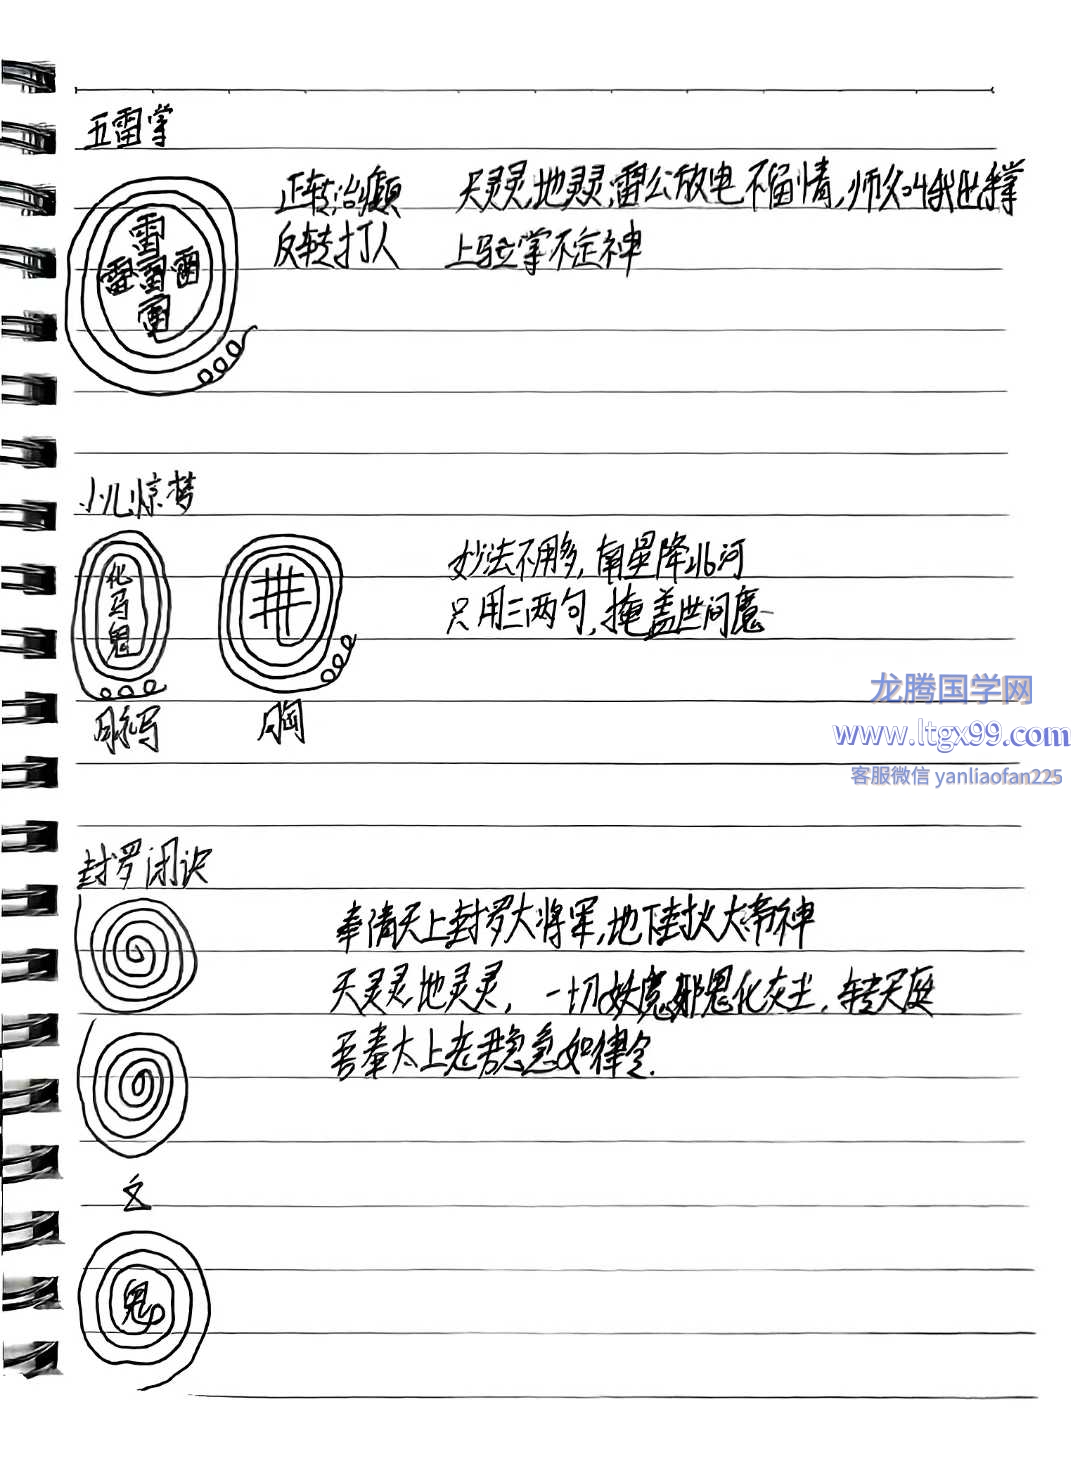 五雷掌
正转治癫 天灵灵,地灵灵,雷公放电不留情,师父叫我出掌
反转打人 上 掌不定神
雷
雷雷雷
雷
小儿惊梦
化马鬼
井
妙法不用多,南星降北河
只用三两句,掩盖世间魔
胸
龙腾国学网
www.ltgx99.com
客服微信 yanliaofan225
封罗闭诀
奉请天上封罗大将军,地下封 大帝神
天灵灵地灵灵,一切妖魔邪鬼化灰土,转天庭
吾奉太上老君急急如律令.
鬼